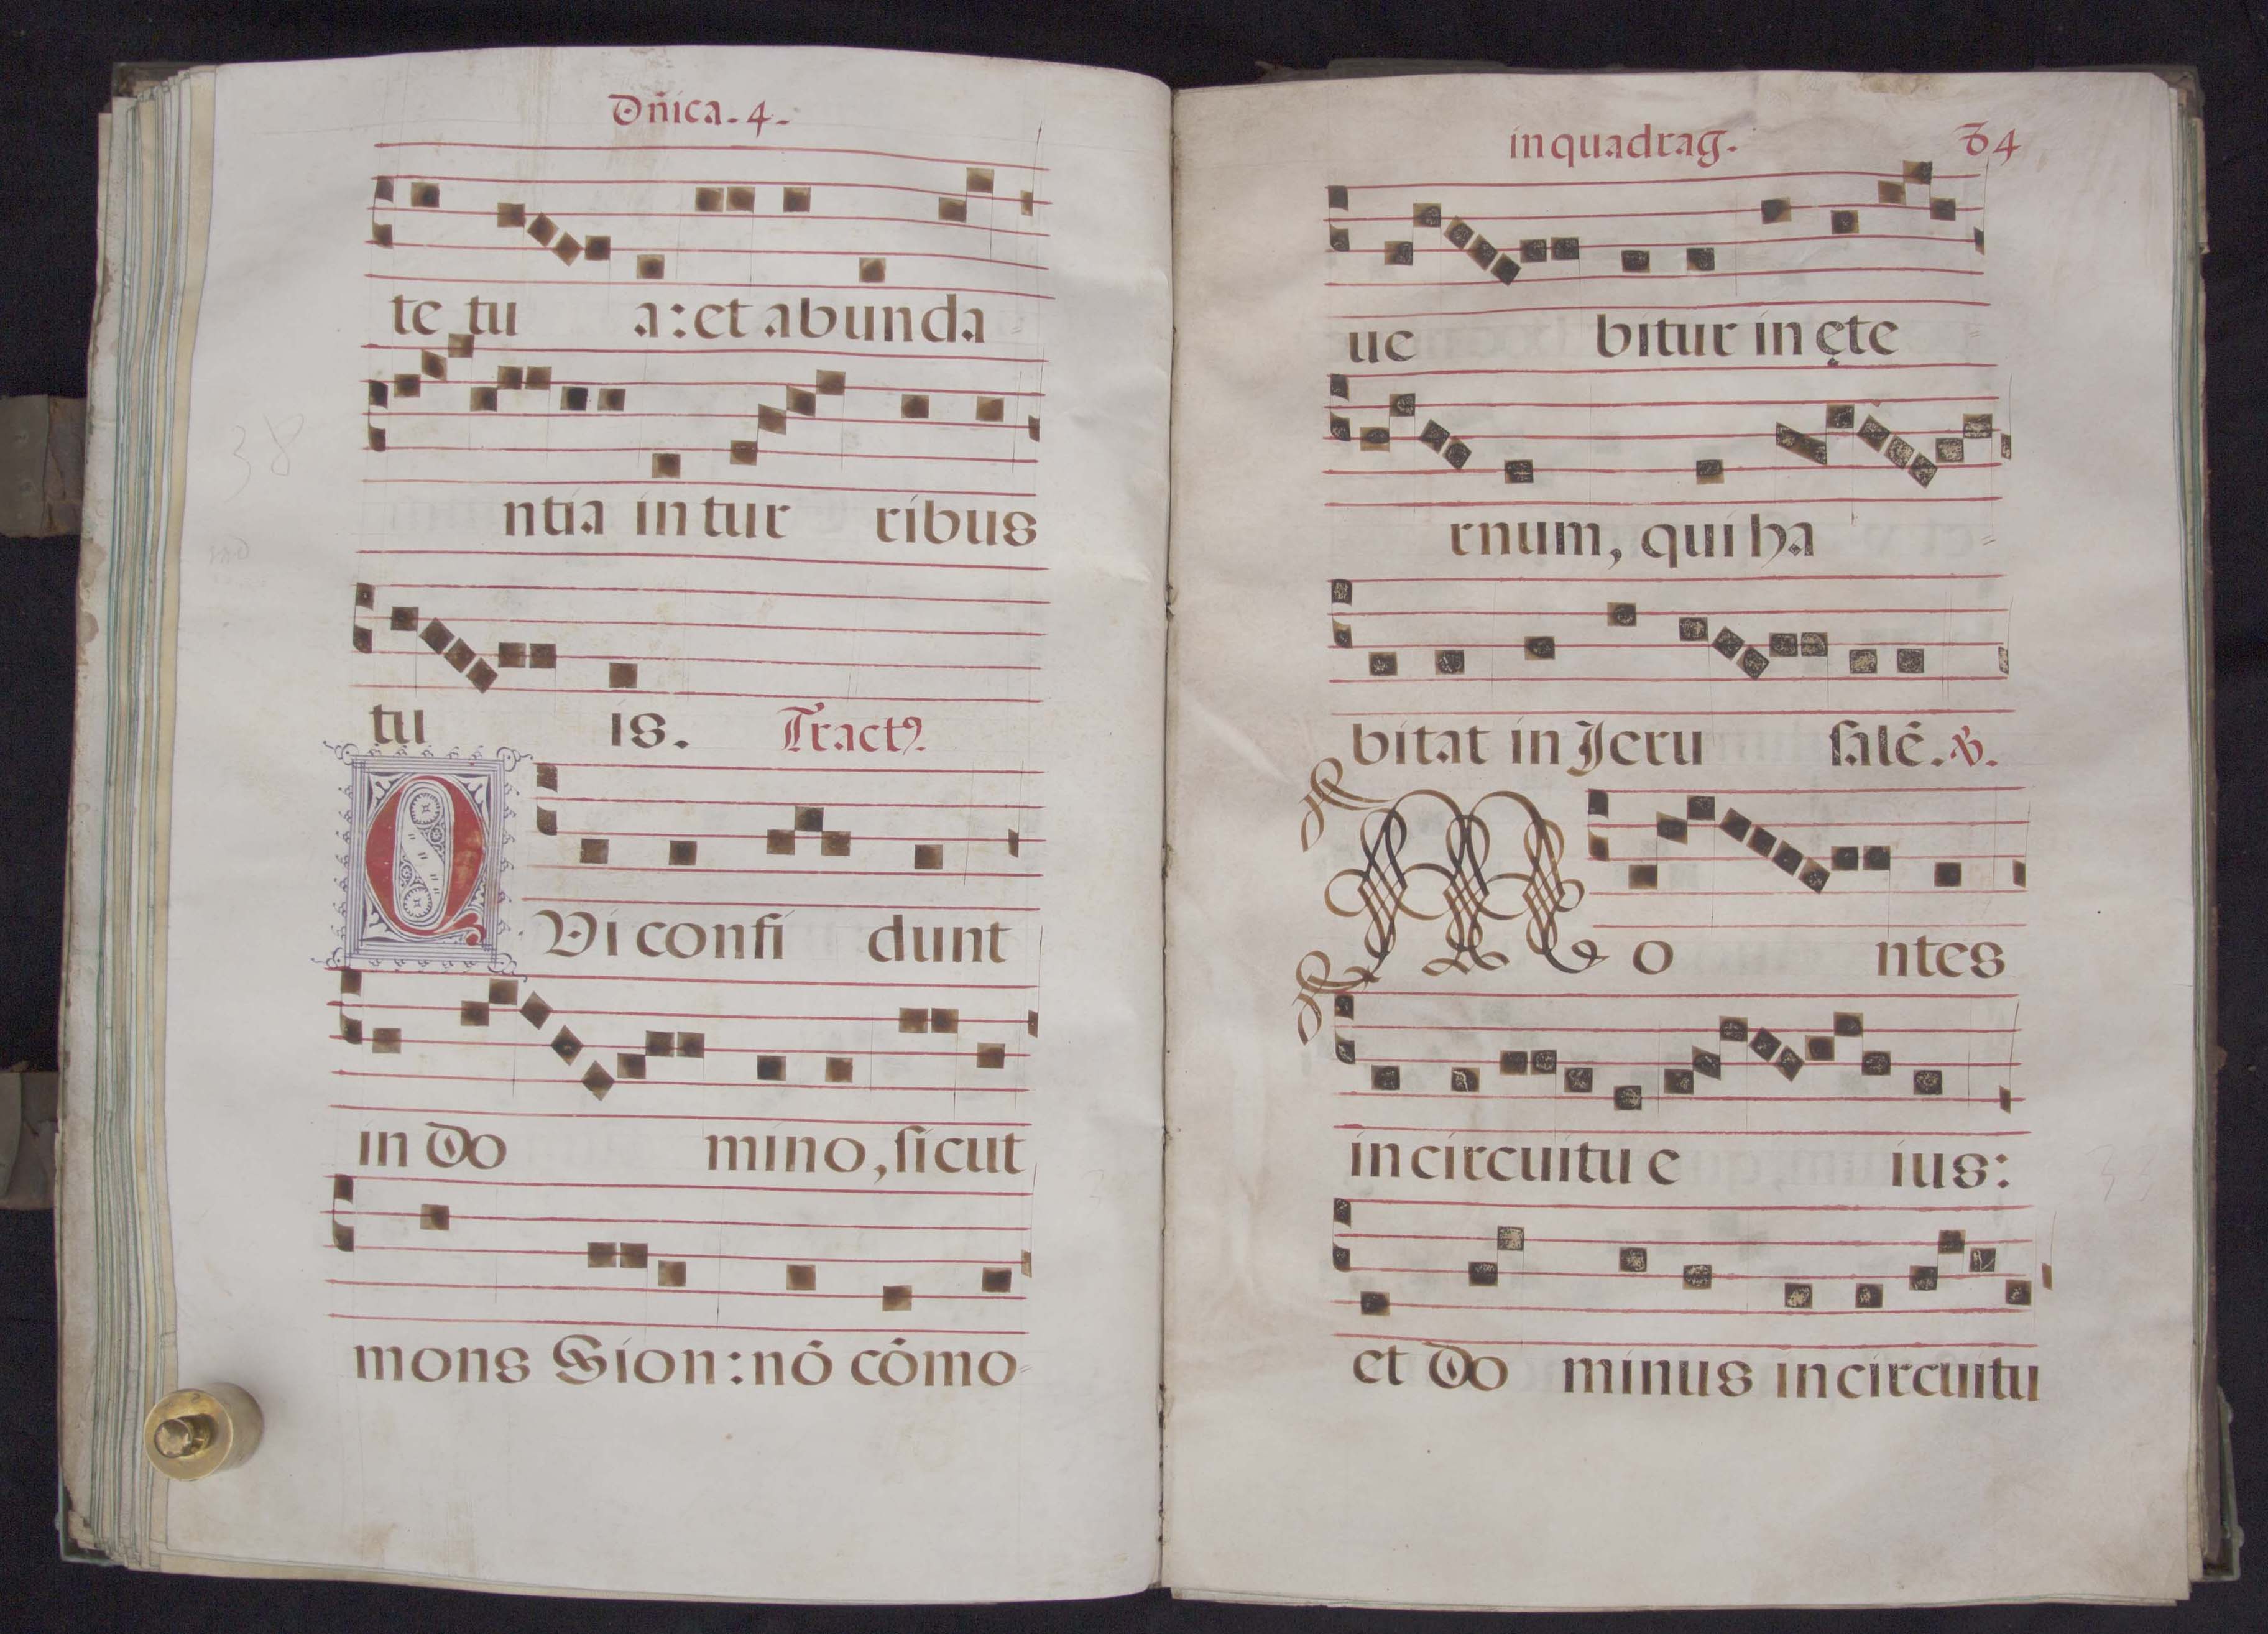 Dn̄ica. 4.
te tu a: et abunda
ntia in tur ribus
tu is. Tractꝯ.
QVi confi dunt
in Do mino, ſicut
mons Sion: nō cōmo
in quadrag. 84
ue bitur in ęte
rnum, qui ha
bitat in Jeru ſalē. ℣.
Mo ntes
in circuitu e ius:
et Do minus in circuitu